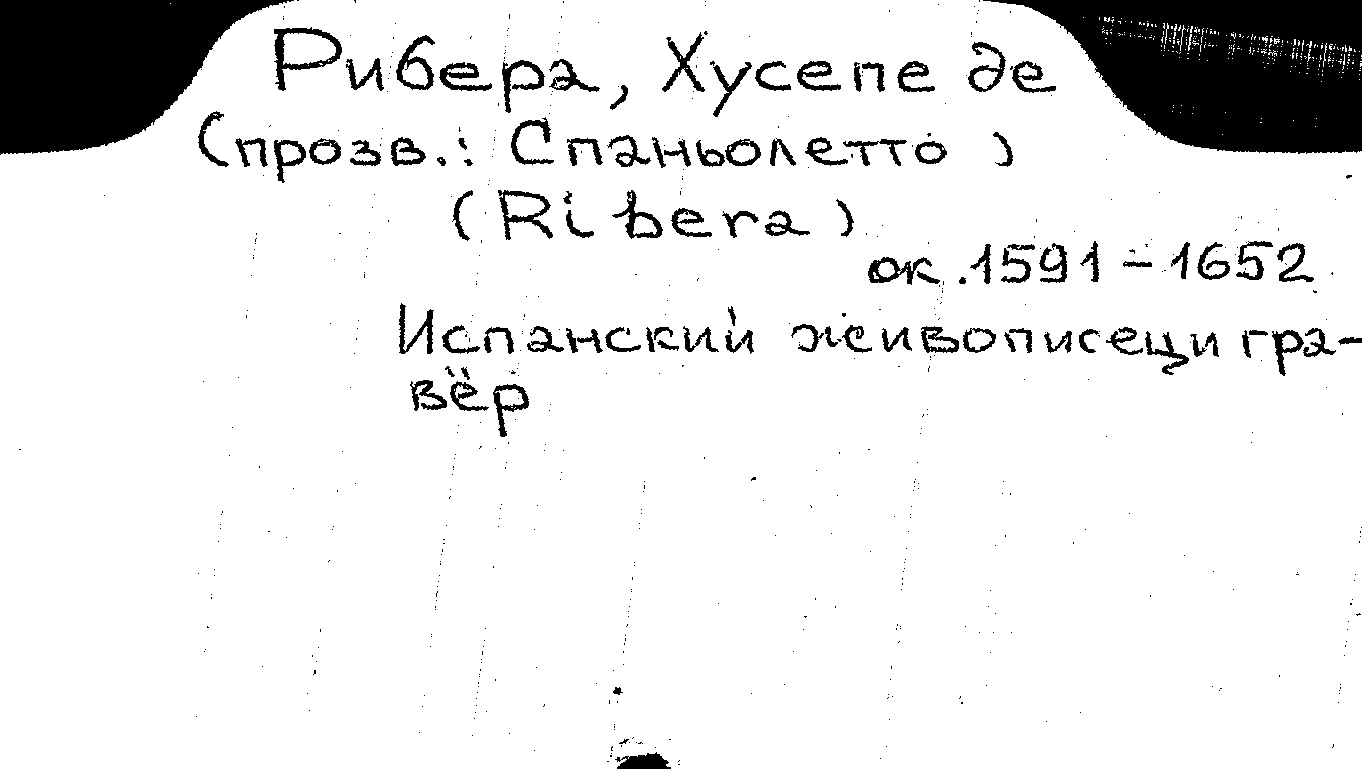 Рибера, Хусепе де
(прозв.: Спаньолетто)
(Ribera)
ок. 1591-1652
Испанский живописец и гра-
вёр